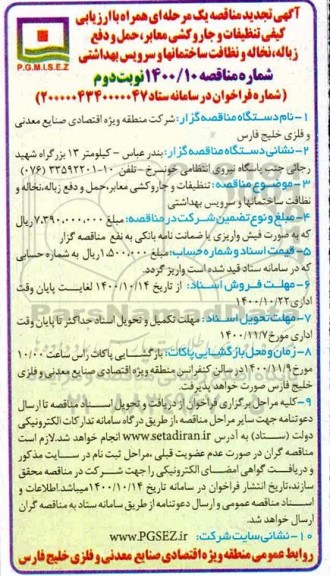 آگهی تجدید مناقصه یک مرحله ای همراه با ارزیابی
کیفی تنظیفات و جاروکشی معابر، حمل و دفع
زباله، نخاله و نظافت ساختمانها و سرویس بهداشتی
P.G.M.I.S.E.Z
شماره مناقصه ۱۴۰۰/۱۰ نوبت دوم
(شماره فراخوان در سامانه ستاد ۲۰۰۰۰۰۴۳۴۰۰۰۰۰۴۷)
۱- نام دستگاه مناقصه گزار: شرکت منطقه ویژه اقتصادی صنایع معدنی
و فلزی خلیج فارس
۲- نشانی دستگاه مناقصه گزار: بندر عباس - کیلومتر ۱۳ بزرگراه شهید
رجائی جنب پاسگاه نیروی انتظامی خونسرخ - تلفن ۱۰-۳۳۵۹۲۲۰۱ (۰۷۶)
۳- موضوع مناقصه: تنظیفات و جاروکشی معابر، حمل و دفع زباله، نخاله و
نظافت ساختمانها و سرویس بهداشتی
۴- مبلغ و نوع تضمین شرکت در مناقصه: مبلغ ۷،۳۹۰،۰۰۰،۰۰۰ ریال
که به صورت فیش واریزی یا ضمانت نامه بانکی به نفع مناقصه گزار
۵- قیمت اسناد و شماره حساب: مبلغ ۱،۵۰۰،۰۰۰ ریال به شماره حسابی
که در سامانه ستاد قید شده است واریز گردد.
۶- مهلت فروش اسناد: از تاریخ ۱۴۰۰/۱۰/۱۴ لغایت پایان وقت
اداری ۱۴۰۰/۱۰/۲۲
۷- مهلت تحویل اسناد: مهلت تکمیل و تحویل اسناد حداکثر تا پایان وقت
اداری مورخ ۱۴۰۰/۱۱/۷
۸- زمان و محل بازگشایی پاکات: بازگشایی پاکات راس ساعت ۱۰/۰۰
مورخ ۱۴۰۰/۱۱/۹ در سالن کنفرانس منطقه ویژه اقتصادی صنایع معدنی و فلزی
خلیج فارس صورت خواهد پذیرفت.
۹- کلیه مراحل برگزاری فراخوان از دریافت و تحویل اسناد مناقصه تا ارسال
دعوتنامه جهت سایر مراحل مناقصه، از طریق درگاه سامانه تدارکات الکترونیکی
دولت (ستاد) به آدرس www.setadiran.ir انجام خواهد شد. لازم است
مناقصه گران در صورت عدم عضویت قبلی، مراحل ثبت نام در سایت مذکور
و دریافت گواهی امضای الکترونیکی را جهت شرکت در مناقصه محقق
سازند، تاریخ انتشار فراخوان در سامانه تاریخ ۱۴۰۰/۱۰/۱۴ میباشد. اطلاعات و
اسناد مناقصه عمومی و ارسال دعوتنامه از طریق سامانه ستاد به مناقصه گران
ارسال خواهد شد.
۱۰- نشانی سایت شرکت: www.PGSEZ.ir
روابط عمومی منطقه ویژه اقتصادی صنایع معدنی و فلزی خلیج فارس